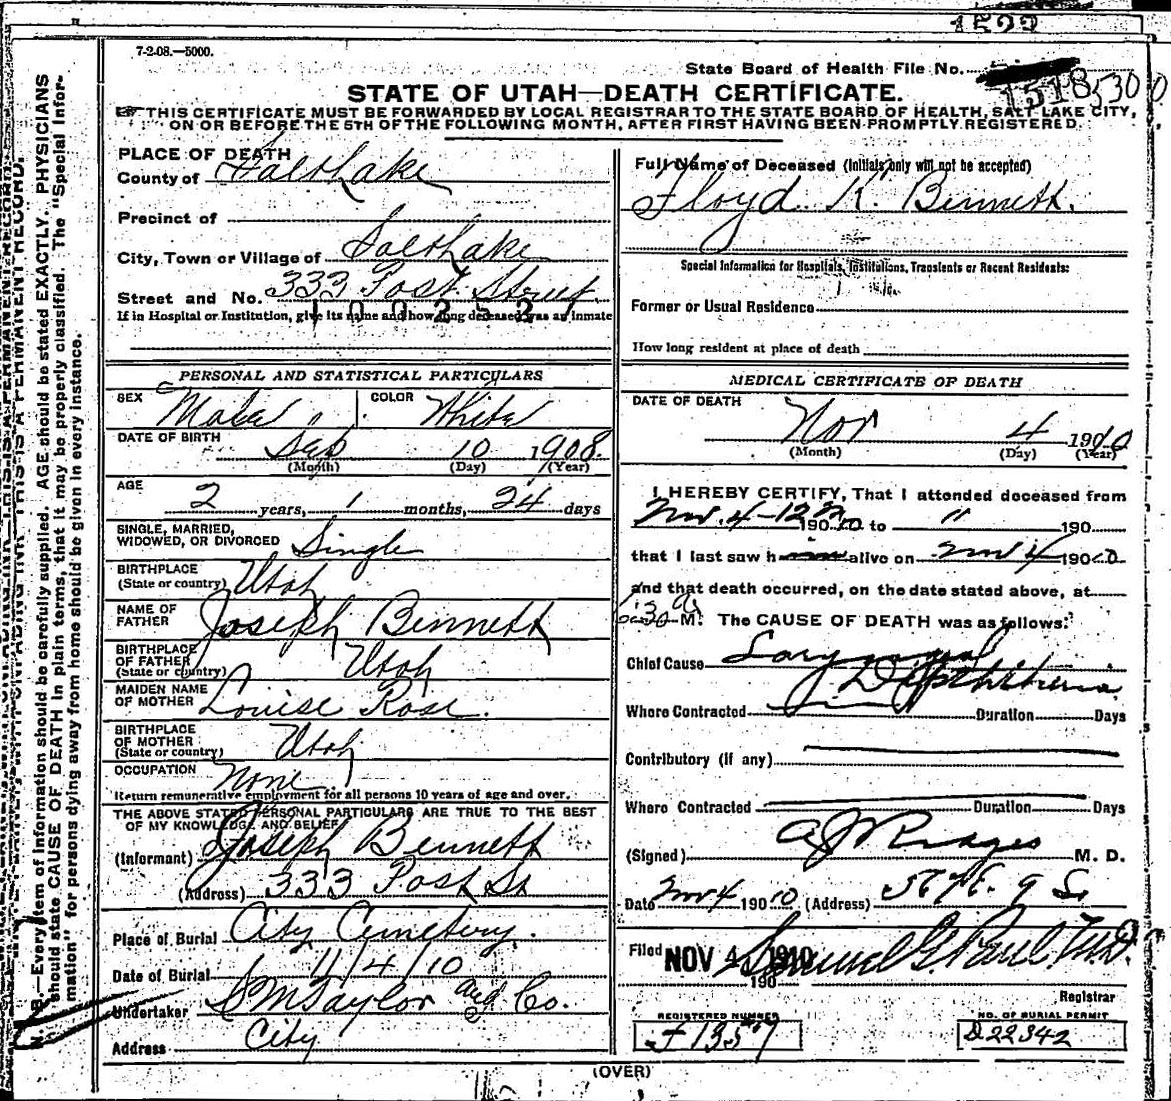 1522
7-2-08.—5000.
State Board of Health File No. 1518
STATE OF UTAH—DEATH CERTIFICATE.
THIS CERTIFICATE MUST BE FORWARDED BY LOCAL REGISTRAR TO THE STATE BOARD OF HEALTH, SALT LAKE CITY,
ON OR BEFORE THE 5TH OF THE FOLLOWING MONTH, AFTER FIRST HAVING BEEN PROMPTLY REGISTERED.
PLACE OF DEATH
County of Salt Lake
Precinct of
City, Town or Village of Salt Lake
Street and No. 333 Post Street
If in Hospital or Institution, give its name and how long deceased was an inmate
1002527
PERSONAL AND STATISTICAL PARTICULARS
SEX Male COLOR White
DATE OF BIRTH Sep 10 1908
(Month) (Day) (Year)
AGE 2 years, 1 months, 24 days
SINGLE, MARRIED,
WIDOWED, OR DIVORCED Single
BIRTHPLACE
(State or country) Utah
NAME OF
FATHER Joseph Bennett
BIRTHPLACE
OF FATHER
(State or country) Utah
MAIDEN NAME
OF MOTHER Louise Rose.
BIRTHPLACE
OF MOTHER
(State or country) Utah
OCCUPATION None
Return remunerative employment for all persons 10 years of age and over.
THE ABOVE STATED PERSONAL PARTICULARS ARE TRUE TO THE BEST
OF MY KNOWLEDGE AND BELIEF
(Informant) Joseph Bennett
(Address) 333 Post St
Place of Burial City Cemetery.
Date of Burial 11/4/10
Undertaker S M Taylor and Co.
Address City
Full Name of Deceased (Initials only will not be accepted)
Floyd K. Bennett.
Special Information for Hospitals, Institutions, Transients or Recent Residents:
Former or Usual Residence
How long resident at place of death
MEDICAL CERTIFICATE OF DEATH
DATE OF DEATH
Nov 4 1910
(Month) (Day) (Year)
I HEREBY CERTIFY, That I attended deceased from
Nov. 4-12 190 10 to " 190
that I last saw h im alive on Nov 4 190 10
and that death occurred, on the date stated above, at
M. The CAUSE OF DEATH was as follows:
Chief Cause Laryngeal
Diphtheria
Where Contracted Duration Days
Contributory (if any)
Where Contracted Duration Days
(Signed) M. D.
Date Nov 4 190 10 (Address)
Filed NOV 4 1910 Samuel G. Paul, M.D.
190
Registrar
REGISTERED NUMBER
J 1357
NO. OF BURIAL PERMIT
D22342
(OVER)
N. B.—Every item of information should be carefully supplied. AGE should be stated EXACTLY. PHYSICIANS
should state CAUSE OF DEATH in plain terms, that it may be properly classified. The "Special Infor-
mation" for persons dying away from home should be given in every instance.